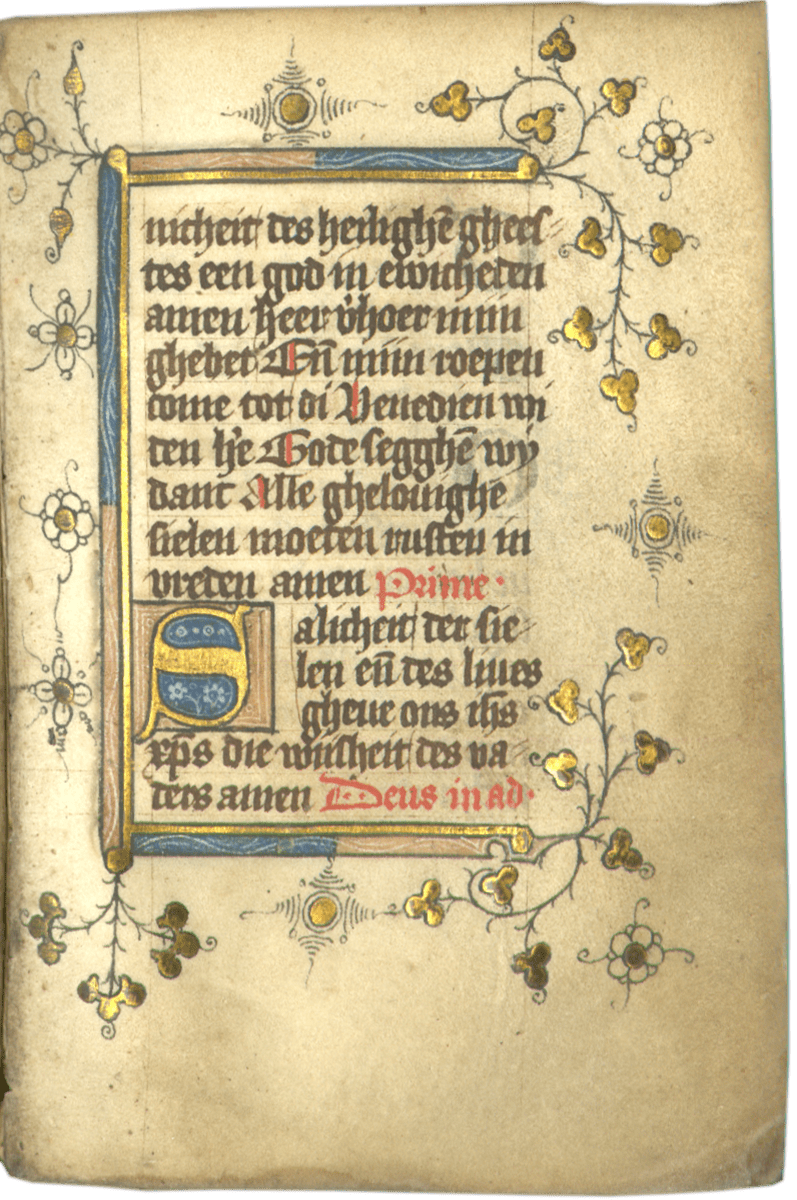 nicheit des heilighē ghees
tes een god in ewicheden
amen heer v̓hoer miin
ghebet Eñ miin roepen
come tot di Benedien wi
den he̓ Gode segghē wy
danc Alle ghelouighe
sielen moeten rusten in
vreden amen Prime·
Salicheit der sie
len eñ des liues
gheue ons ihs
xp̄s die wiisheit des va
ders amen Deus in ad·